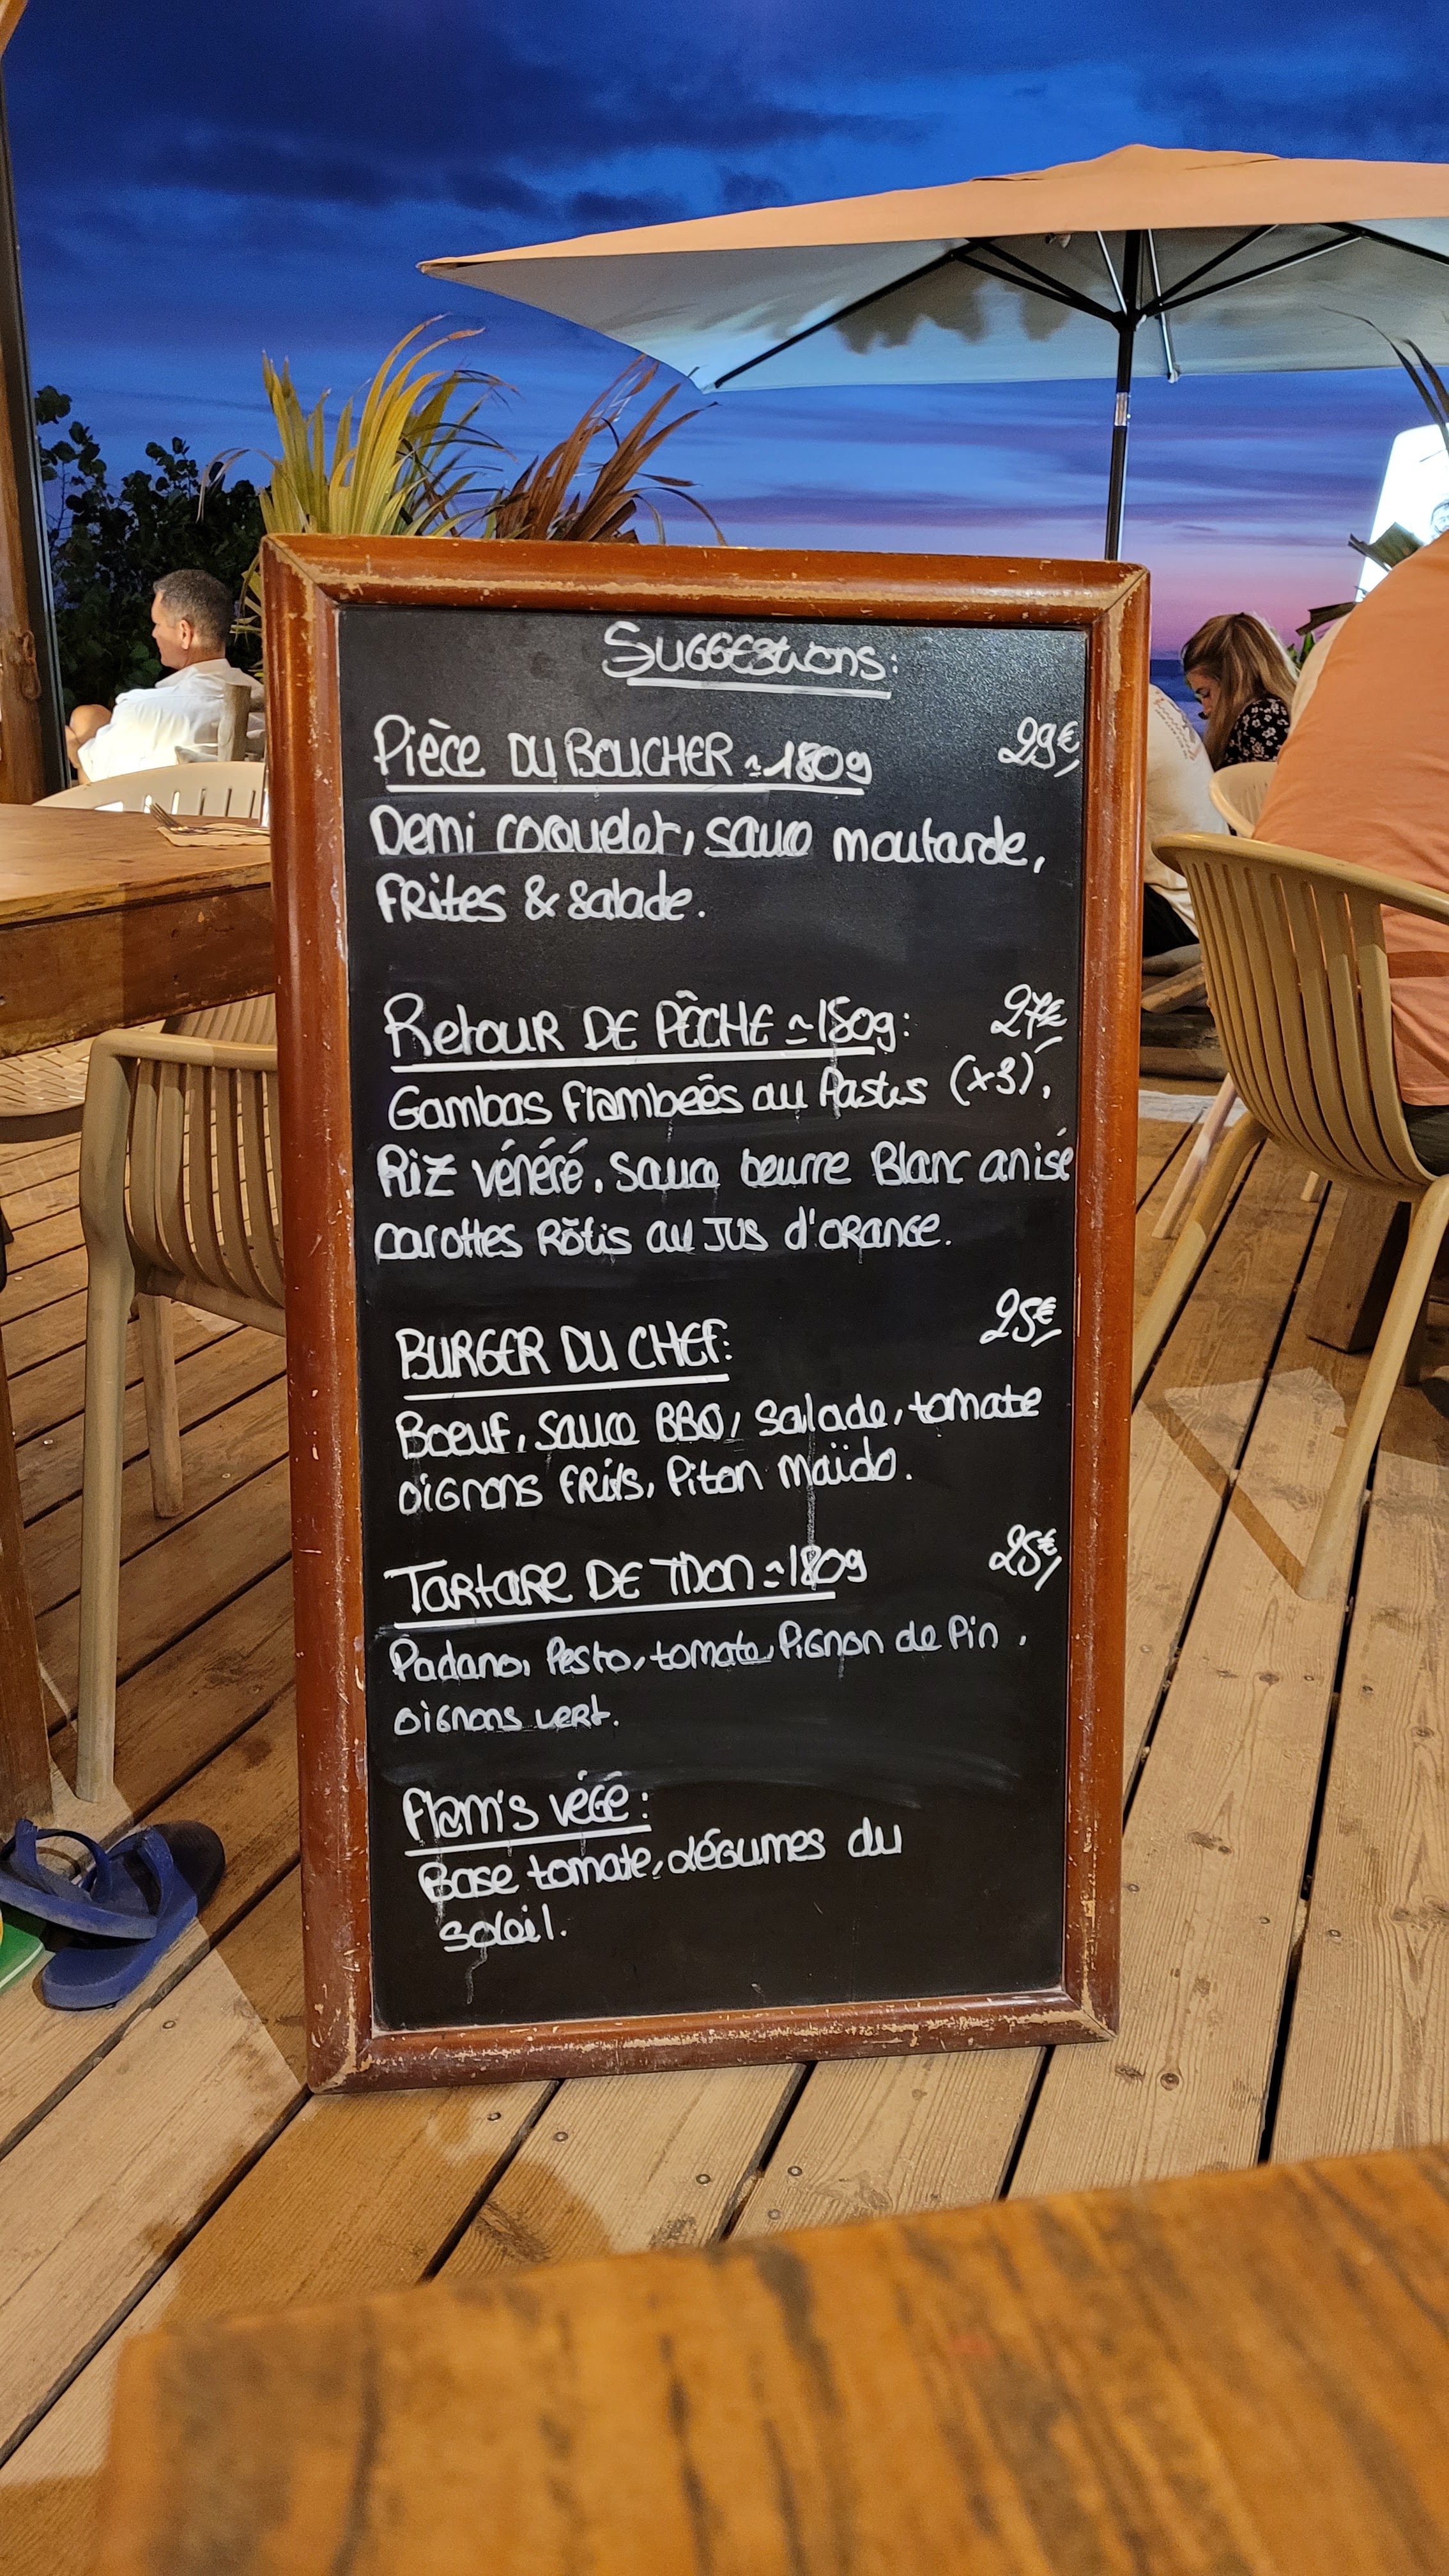 Suggestions:
Pièce du Boucher ~180g 29€
Demi coquelet, sauce moutarde,
Frites & Salade.
Retour de Pêche ~150g: 27€
Gambas flambées au Pastis (x3),
Riz vénéré, Sauce beurre Blanc anisé
carottes Rôtis au Jus d'orange.
Burger du Chef: 25€
Boeuf, sauce BBQ, Salade, tomate
oignons frits, Piton Maïdo.
Tartare de Thon ~180g 25€
Padano, Pesto, tomate, Pignon de Pin,
oignons vert.
Flam's végé:
Base tomate, légumes du
soleil.